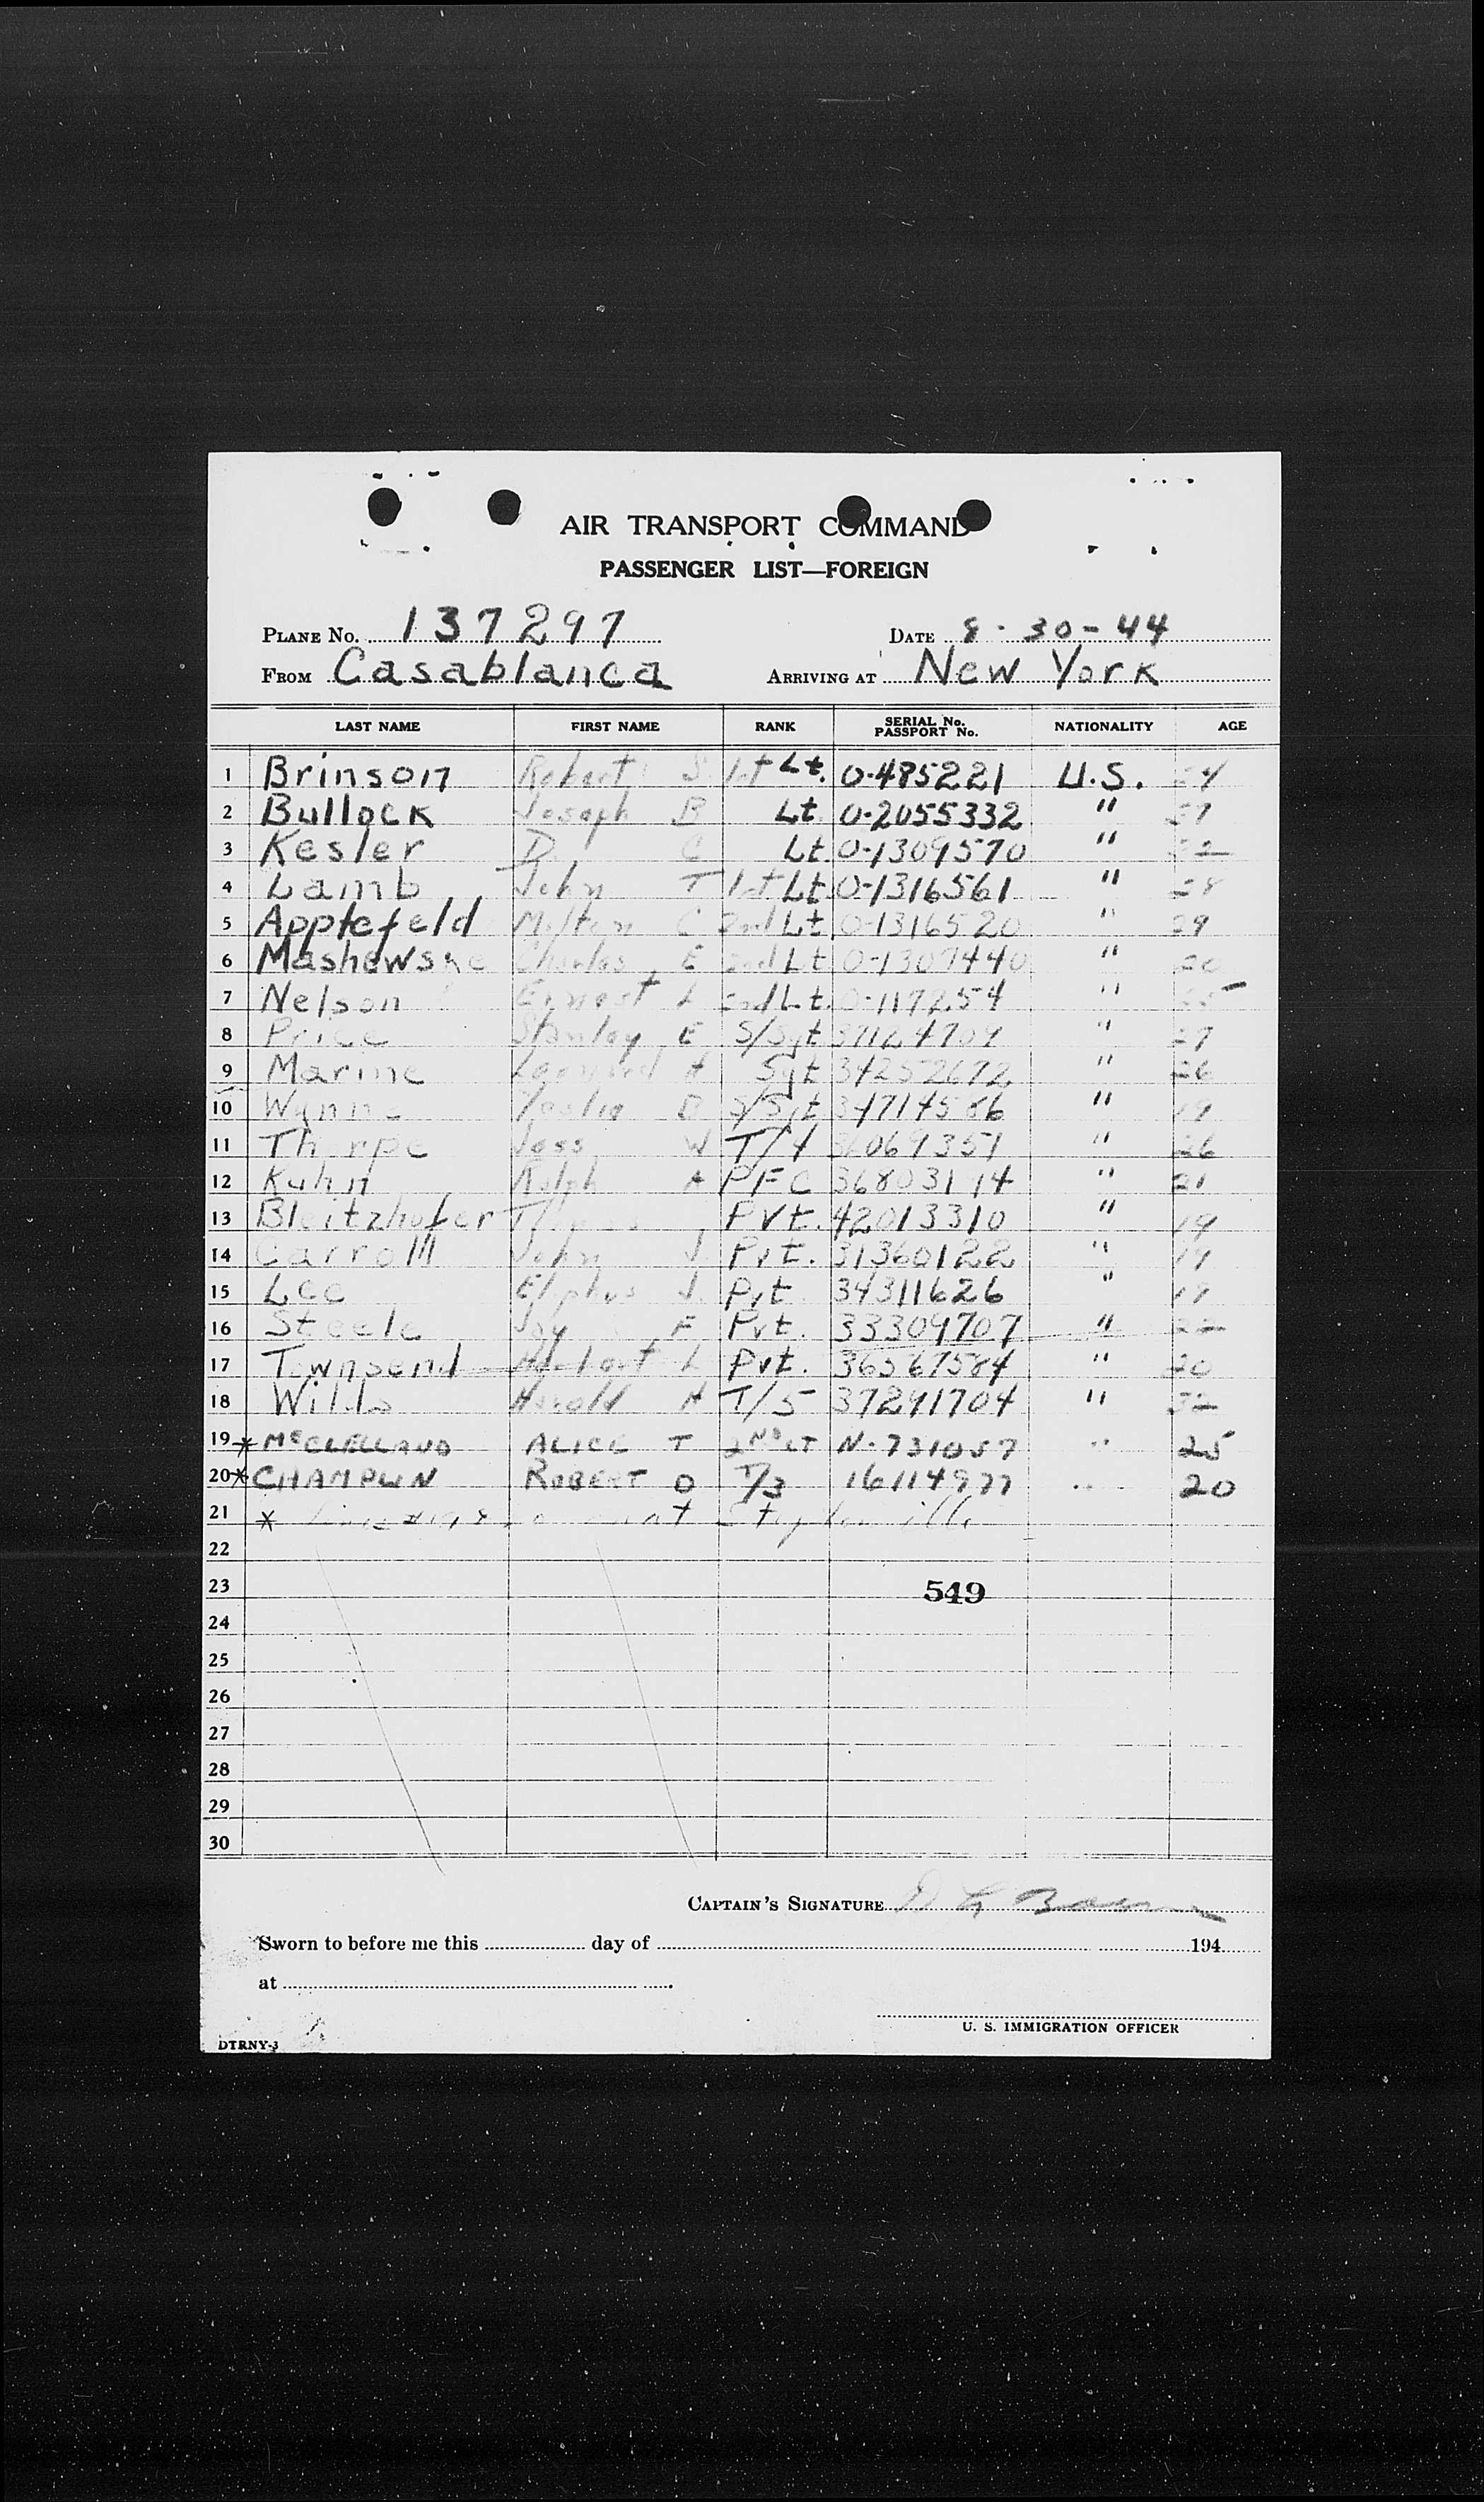 AIR TRANSPORT COMMAND
PASSENGER LIST—FOREIGN
PLANE No. 137297 DATE 8-30-44
FROM Casablanca ARRIVING AT New York
LAST NAME FIRST NAME RANK SERIAL No. PASSPORT No. NATIONALITY AGE
1 Brinson Robert S 1st Lt. 0-485221 U.S. 24
2 Bullock Joseph B Lt 0-2055332 "
3 Kesler D C Lt. 0-1309570 "
4 Lamb John T 1st Lt. 0-1316561 " 28
5 Applefeld Milton C 2nd Lt. 0-1316520 " 29
6 Charles E 2nd Lt 0-1307440 " 20
7 Nelson Ernest L 2nd Lt. "
8 Price Stanley E S/Sgt 37124709 " 27
9 Marine Leonard A Sgt 34252672 " 26
10 Wynne B S/Sgt 34714586 " 19
11 Thorpe W T/4 " 26
12 Kuhn Ralph A PFC 36803114 " 21
13 Bleitzhofer Thomas Pvt. 42013310 " 19
14 Carroll John J. Pvt. 31360122 " 19
15 Lee J. Pvt 34311626 "
16 Steele Jay F Pvt. 33309707 " 22
17 Townsend Herbert L Pvt. 36567584 " 20
18 Wills Harold A T/5 37291704 " 32
19 * McCLELLAND ALICE T 2ND LT N-731057 " 25
20 * CHAMPLIN ROBERT D T/3 16114977 " 20
21 * at Stephenville
22
23 549
24
25
26
27
28
29
30
CAPTAIN'S SIGNATURE
Sworn to before me this day of 194
at
U. S. IMMIGRATION OFFICER
DTRNY-3